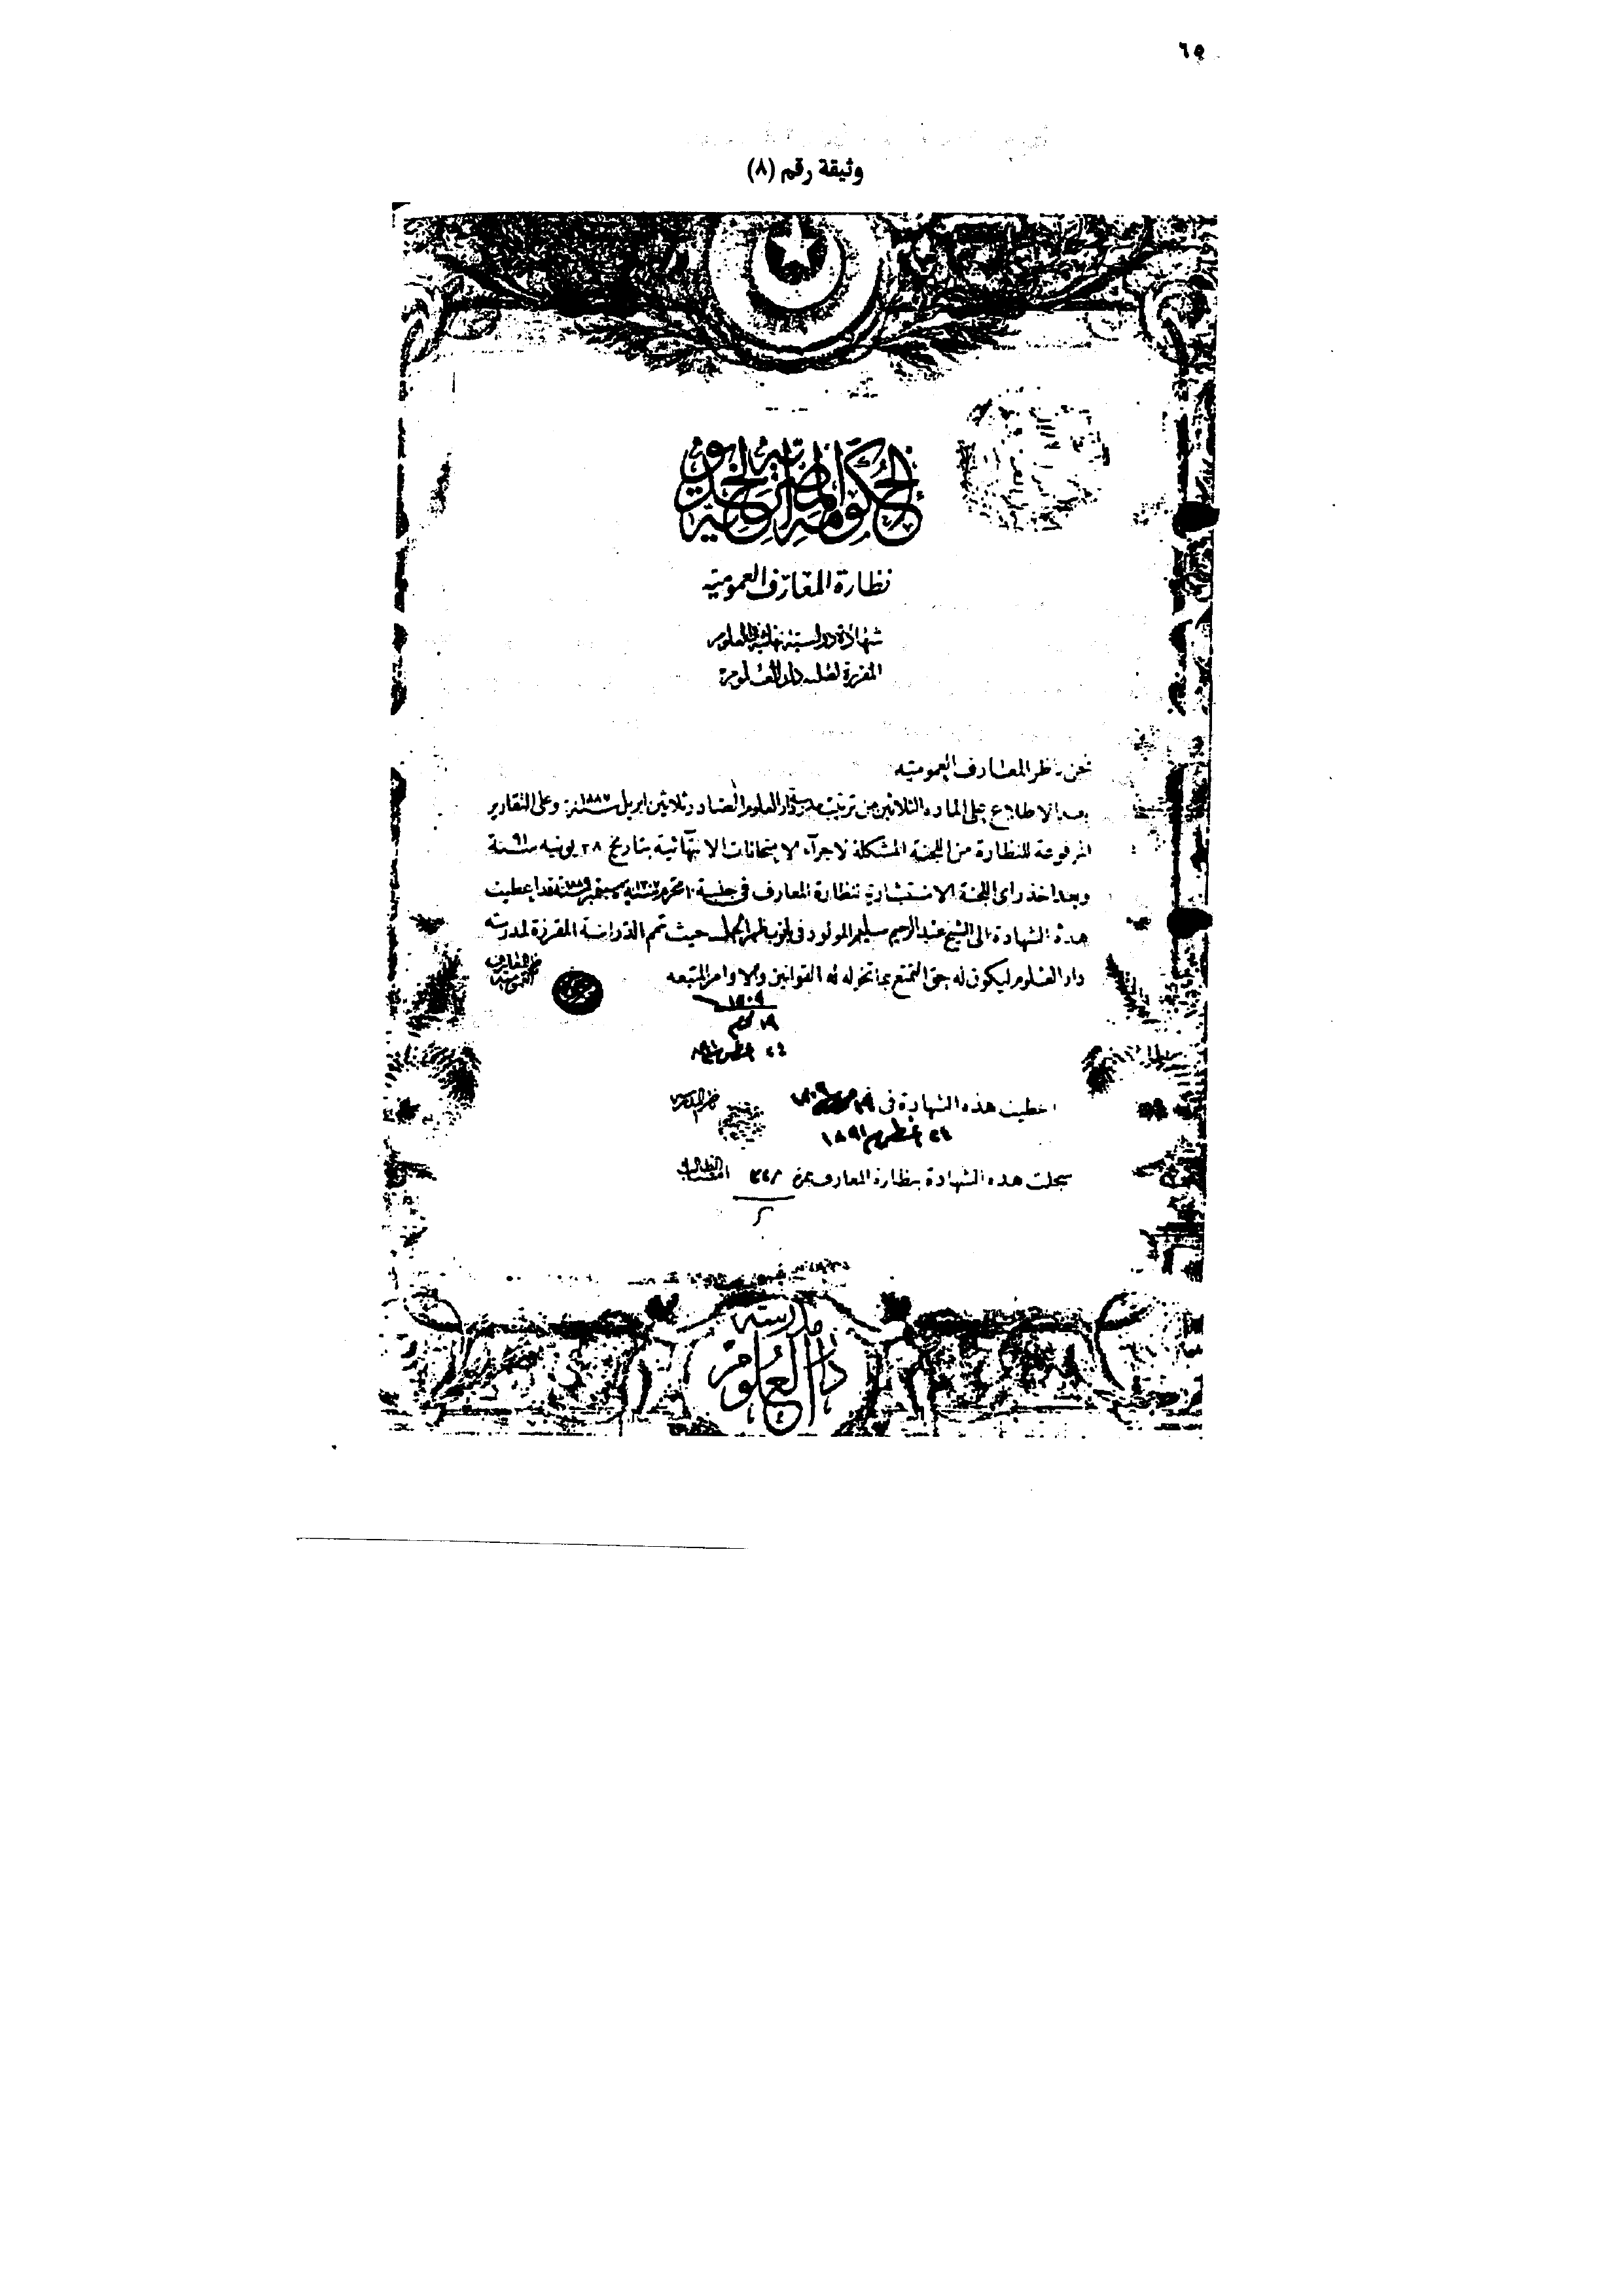 ٦٥
وثيقة رقم (٨)
الحكومة المصرية الخديوية
نظارة المعارف العموميه
شهادة دراسية نهائية فى العلوم
المقررة لطلبه دار العلوم
نحن ناظر المعارف العموميه
بعد الاطلاع على الماده الثلاثين من ترتيب مدرسة دار العلوم الصادر ثلاثين ابريل سنة ١٨٨٧ وعلى التقارير
المرفوعة للنظارة من اللجنة المشكلة لاجرآء الامتحانات الانتهائية بتاريخ ٢٨ يونيه سنة ٩١
وبعد اخذ راى اللجنة الاستشارية لنظارة المعارف فى جلسة ١٠ محرم سنة ١٣٠٧ سبتمبر سنة ١٨٨٩ قد اعطيت
هذه الشهادة الى الشيخ عبد الرحيم سليم المولود فى حيث تمم الدراسة المقررة لمدرسة
دار العلوم ليكون له حق التمتع بما تخوله له القوانين والاوامر المتبعه
ناظر المعارف العمومية
١٣٠٩
١٩ محرم
٢٤ اغسطس ٩١
اعطيت هذه الشهادة فى ١٩ محرم ١٣٠٩
٢٤ اغسطس ١٨٩١
ناظر المدرسة
سجلت هذه الشهادة بنظارة المعارف بنمرة
امضا الطالب
مدرسة
دار العلوم